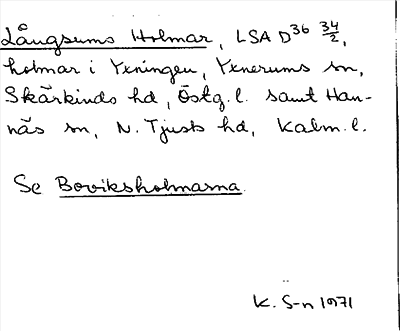 Långsums Holmar, LSA D36 34/2,
holmar i Yxningen, Yxnerums sn,
Skärkinds hd, Östg. l. samt Han-
näs sn, N. Tjusts hd, Kalm. l.
Se Boviksholmarna.
K. S-n 1971